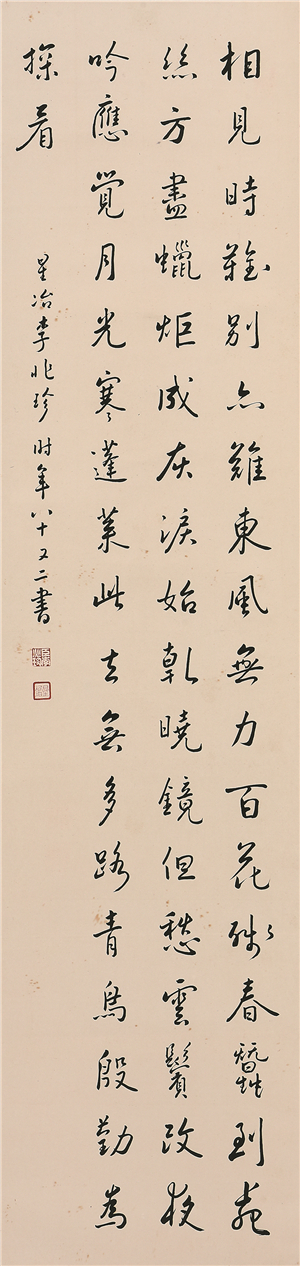 相見時難別亦難東風無力百花殘春蠶到死
絲方盡蠟炬成灰淚始乾曉鏡但愁雲鬢改夜
吟應覺月光寒蓬萊此去無多路青鳥殷勤為
探看
星冶李兆珍時年八十又二書